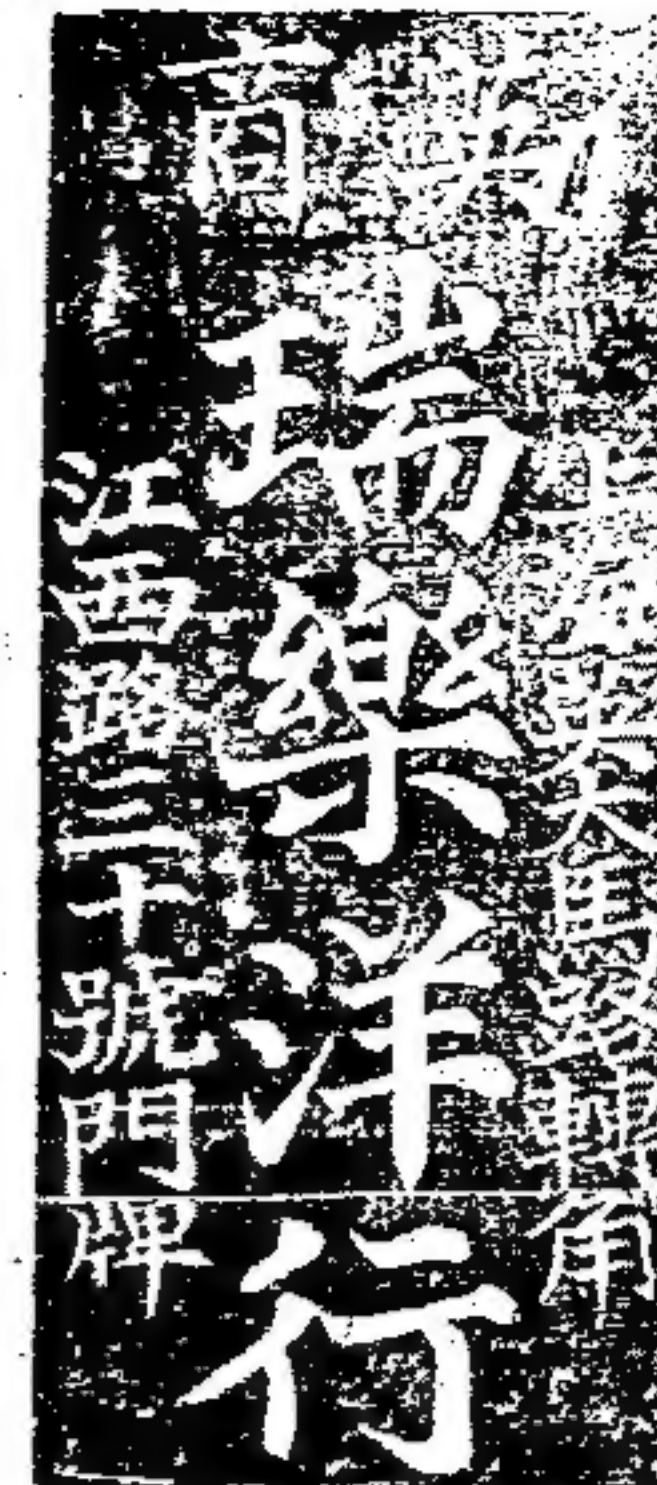 商
大馬路轉角
瑞樂洋行
江西路三十號門牌